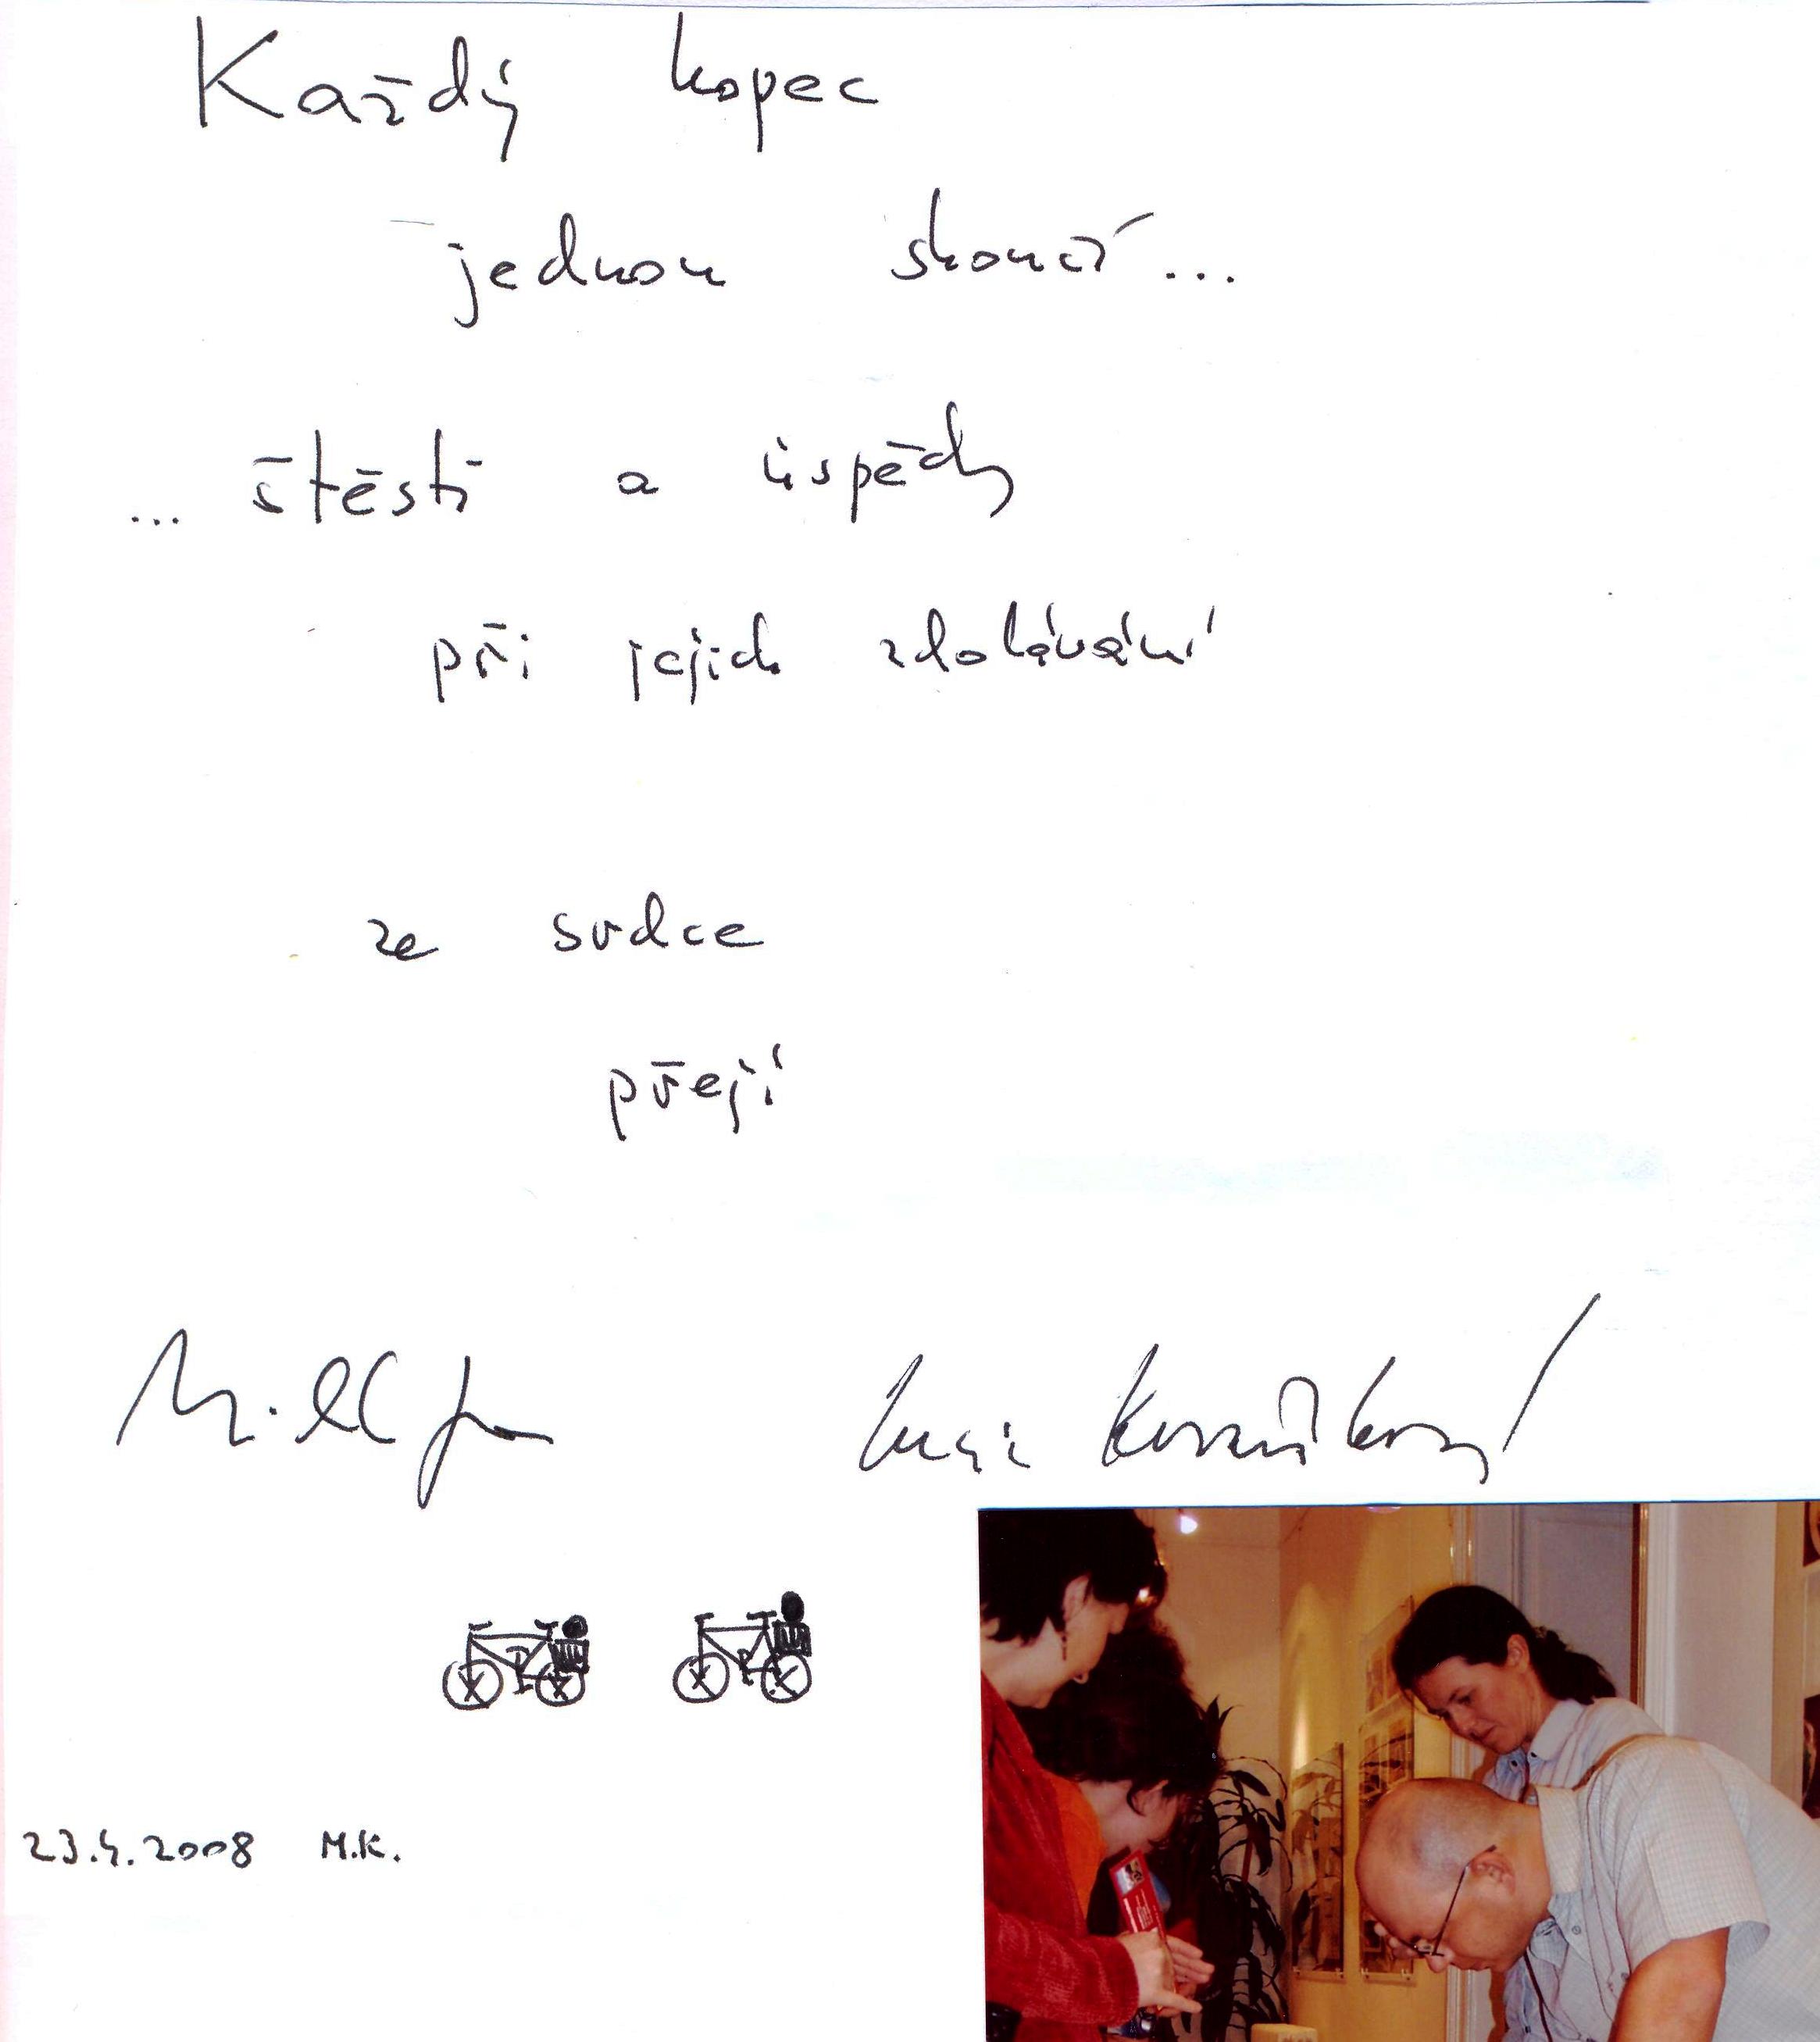 Každý kopec
jednou skončí...
... štěstí a úspěchy
při jejich zdolávání
ze srdce
přejí
23.4.2008 M.K.